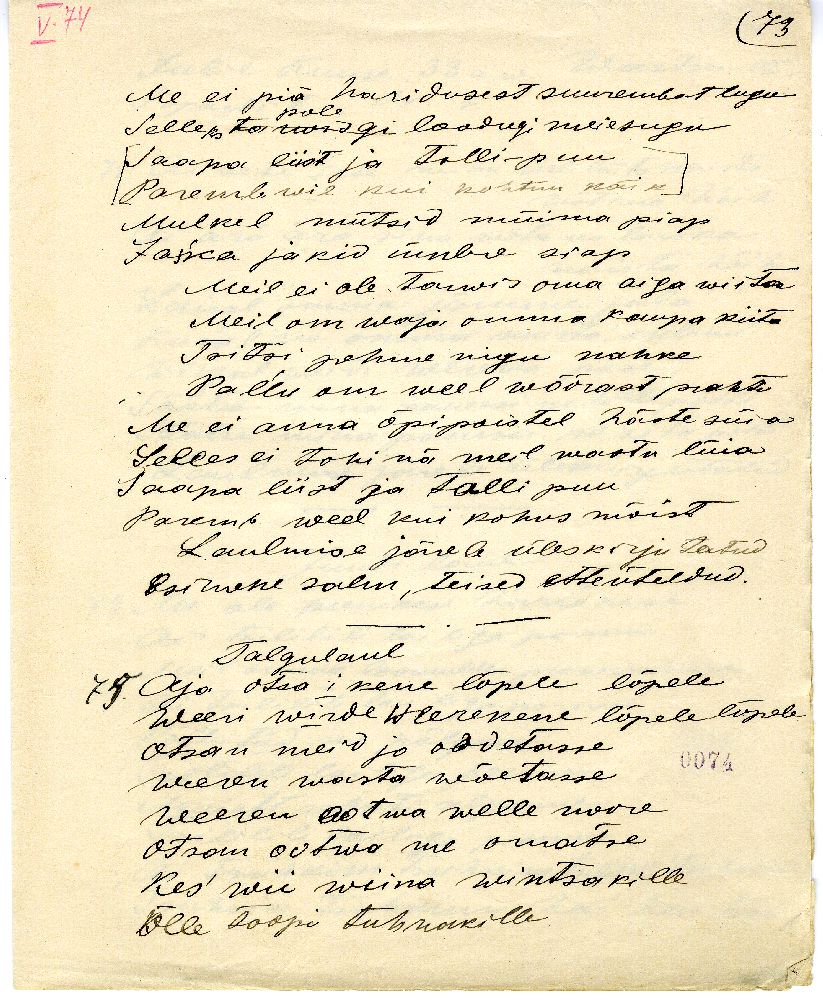 V. 74
(73
Me ei piä haridusest suurembat lugu
Selles pole tarwisgi loodugi meiesugu
Saapa liist ja Tolli-puu
Paremb wil kui kohtun käik
Mulkel mütsid müima piap
Zaska jakid ümbre aiap
Meil ei ole Tarwis oma aiga wiita
Meil om waja omma kaupa kiita
Tsitsi pehme nigu nahke
Pallu om weel wõõrast
Me ei anna õpipoistel häste süia
Selles ei tohi nä meil wasta lüia
Saapa liist ja Talli puu
Paremb weel kui kohus mõist
Laulmise järele üleskirjutatud
Esimene salm, teised etteüteldud.
Talgulaul
75 Aja otsa ikene lõpele lõpele
Weeri wirde Weerekene lõpele lõpele
Otsan meid jo oodetasse
Weeren wasta wõetasse
Weeren ootwa welle noore
0074
Otsan ootwa me omatse
Kes' wii wiina wintsakille
Õlle toopi tuhnakille